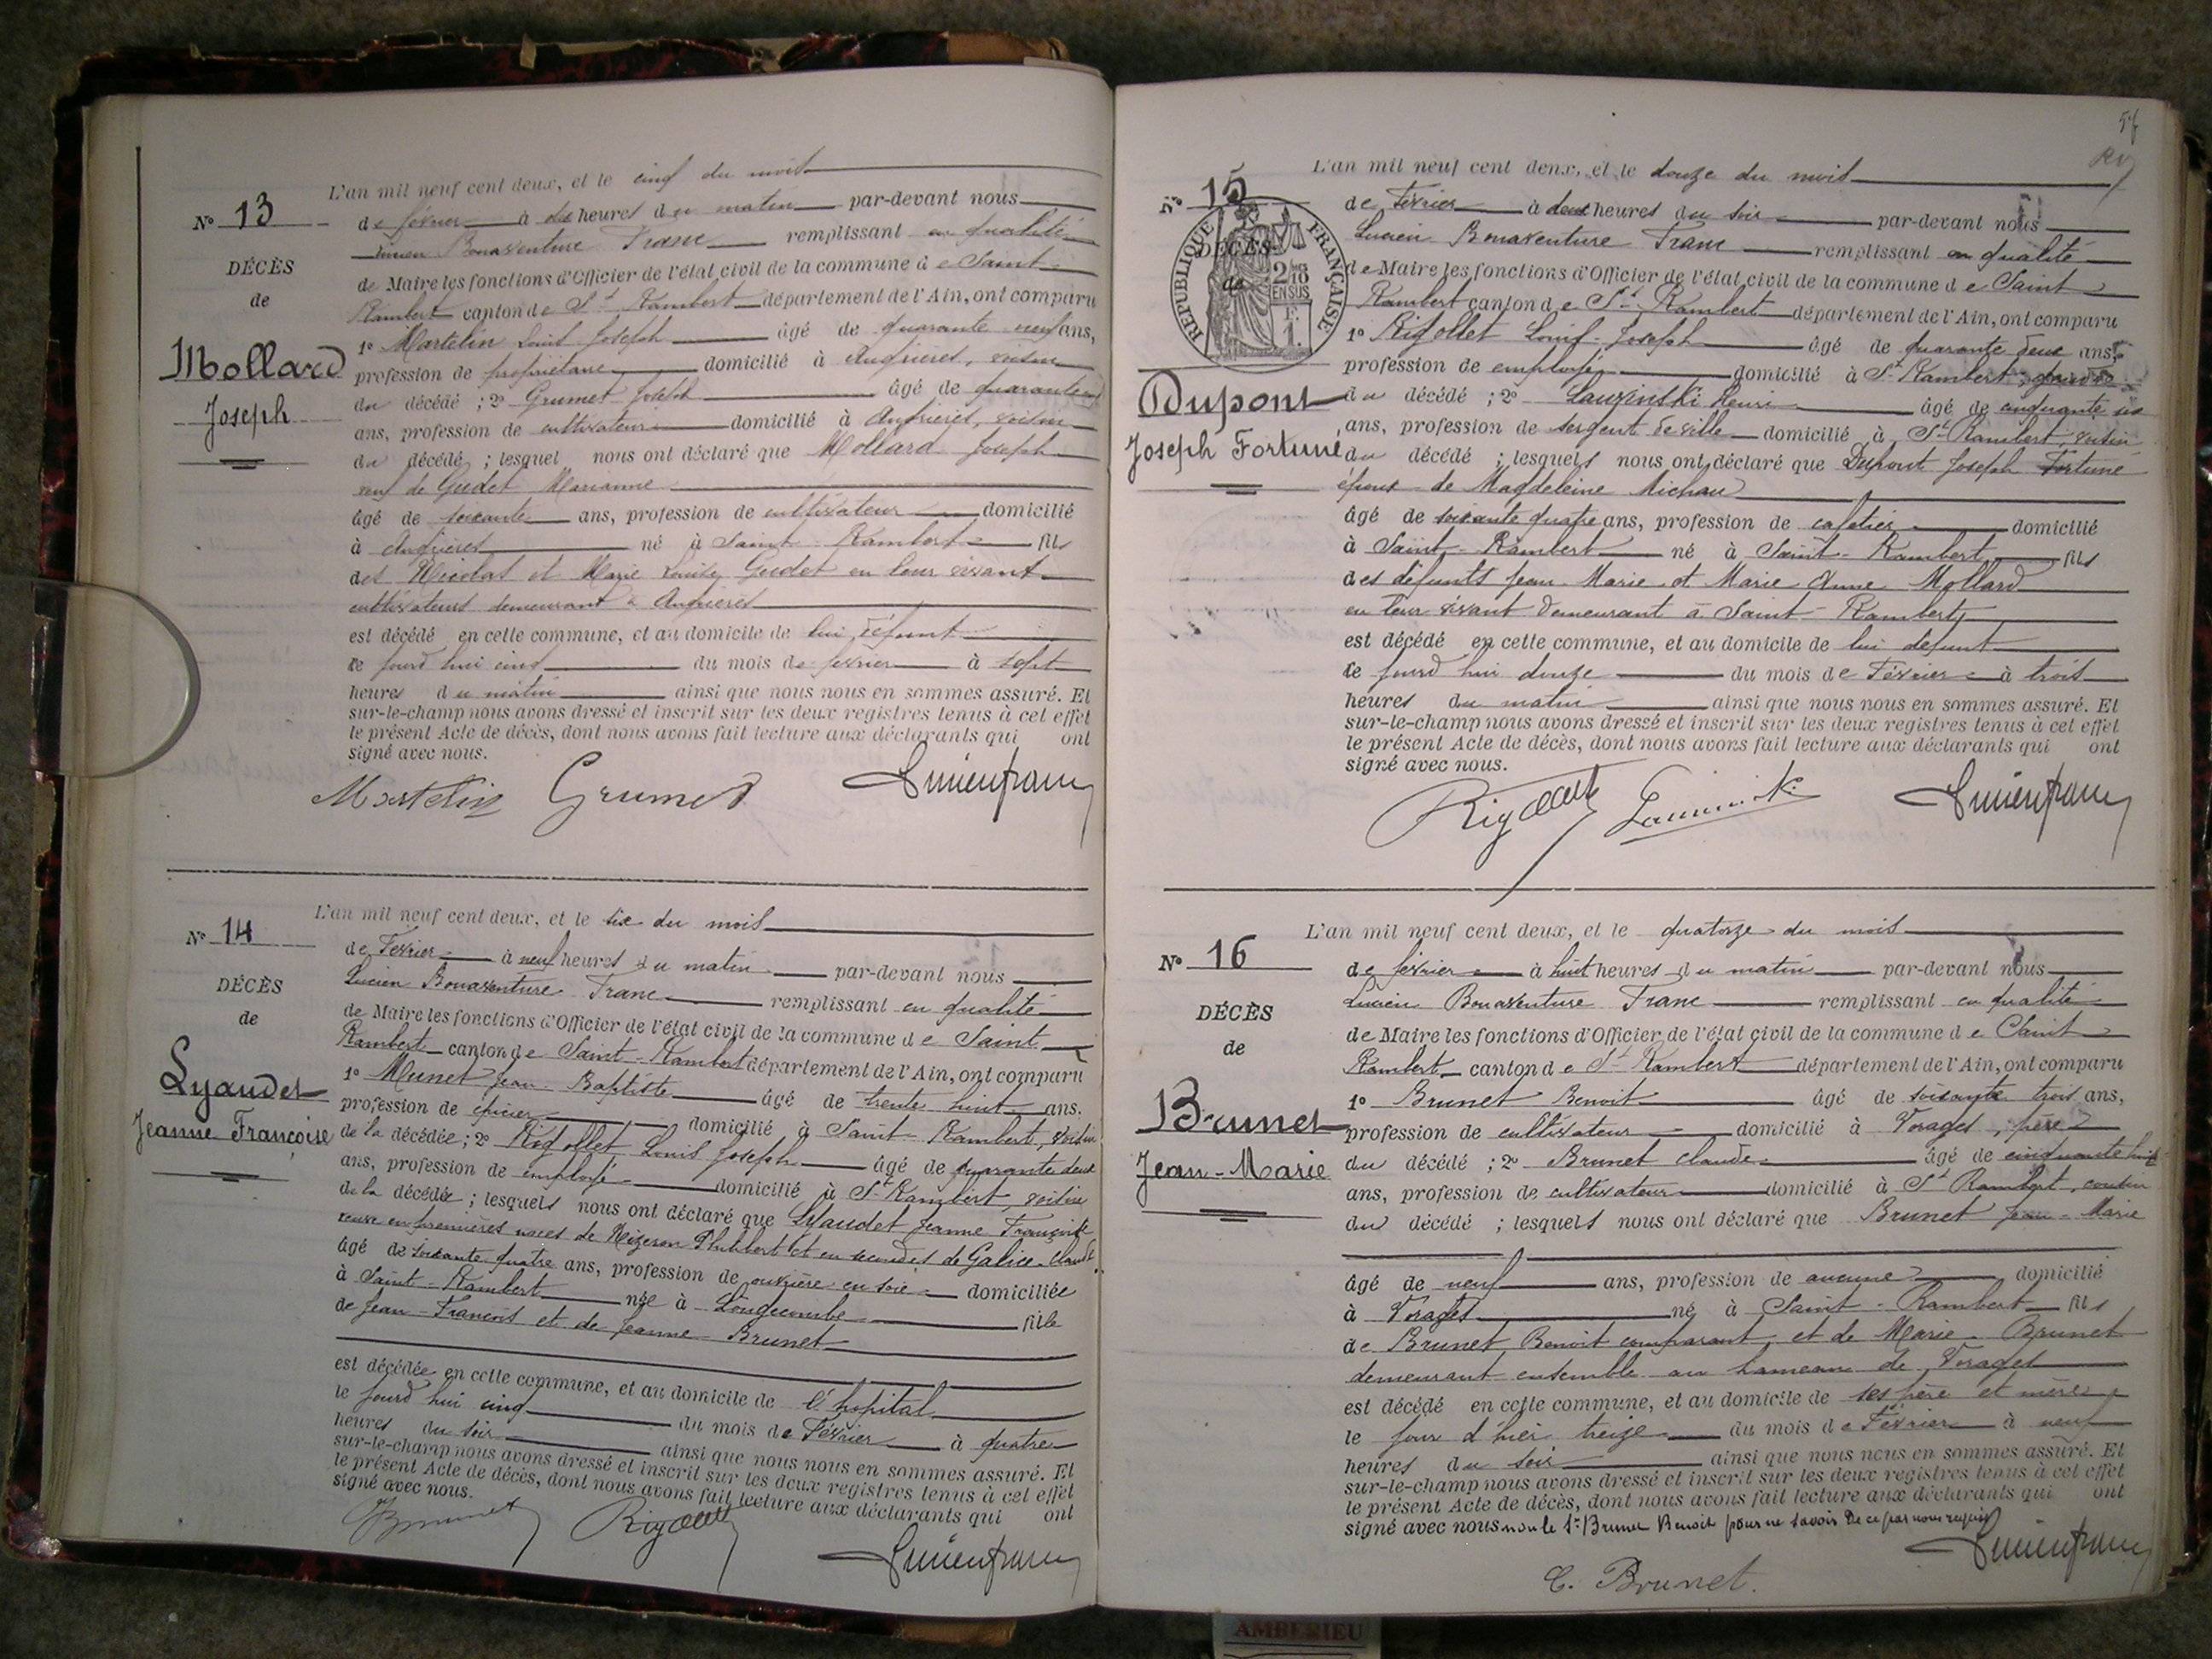 N° 13
DÉCÈS
de
Mollard
Joseph
L'an mil neuf cent deux, et le cinq du mois
de février à dix heures du matin par-devant nous
Lucien Bonaventure Franc remplissant en qualité
de Maire les fonctions d'Officier de l'état civil de la commune de Saint
Rambert canton de St Rambert département de l'Ain, ont comparu
1° Martelin Louis Joseph âgé de quarante neuf ans,
profession de propriétaire domicilié à Angrières, voisin
du décédé ; 2° Grumet Joseph âgé de quarante
ans, profession de cultivateur domicilié à Angrières, voisin
du décédé ; lesquel nous ont déclaré que Mollard Joseph
veuf de Gudet Marianne
âgé de soixante ans, profession de cultivateur domicilié
à Angrières né à Saint-Rambert fils
des Nicolas et Marie Louise Gudet en leur vivant
cultivateurs demeurant à Angrières
est décédé en cette commune, et au domicile de lui défunt
le jourd'hui cinq du mois de février à sept
heures du matin ainsi que nous nous en sommes assuré. Et
sur-le-champ nous avons dressé et inscrit sur les deux registres tenus à cet effet
le présent Acte de décès, dont nous avons fait lecture aux déclarants qui ont
signé avec nous.
Martelin Grumet Lucien franc
N° 14
DÉCÈS
de
Lyaudet
Jeanne Françoise
L'an mil neuf cent deux, et le six du mois
de Février à neuf heures du matin par-devant nous
Lucien Bonaventure Franc remplissant en qualité
de Maire les fonctions d'Officier de l'état civil de la commune de Saint
Rambert canton de Saint-Rambert département de l'Ain, ont comparu
1° Munet Jean-Baptiste âgé de trente huit ans.
profession de épicier domicilié à Saint-Rambert, voisin
de la décédée ; 2° Rigollet Louis Joseph âgé de quarante deux
ans, profession de employé domicilié à St Rambert, voisin
de la décédée ; lesquels nous ont déclaré que Lyaudet Jeanne Françoise
veuve en premières noces de Philibert et en secondes de Galice Claude
âgé de soixante quatre ans, profession de ouvrière en soie domiciliée
à Saint-Rambert née à Longecombe fille
de Jean-François et de Jeanne Brunet
est décédée en cette commune, et au domicile de l'hopital
le jourd'hui cinq du mois de Février à quatre
heures du soir ainsi que nous nous en sommes assuré. Et
sur-le-champ nous avons dressé et inscrit sur les deux registres tenus à cet effet
le présent Acte de décès, dont nous avons fait lecture aux déclarants qui ont
signé avec nous.
Rigollet Lucien franc
N° 15
DÉCÈS
de
RÉPUBLIQUE FRANÇAISE
2/10 EN SUS
F. 1.
Dupont
Joseph Fortuné
L'an mil neuf cent deux, et le douze du mois
de Février à deux heures du soir par-devant nous
Lucien Bonaventure Franc remplissant en qualité
de Maire les fonctions d'Officier de l'état civil de la commune de Saint
Rambert canton de St-Rambert département de l'Ain, ont comparu
1° Rigollet Louis-Joseph âgé de quarante deux ans,
profession de employé domicilié à St Rambert,
du décédé ; 2° Lauzinski Henri âgé de cinquante six
ans, profession de sergent de ville domicilié à St-Rambert, voisin
du décédé ; lesquels nous ont déclaré que Dupont Joseph Fortuné
époux de Magdeleine Michau
âgé de soixante quatre ans, profession de cafetier domicilié
à Saint-Rambert né à Saint-Rambert fils
des défunts Jean-Marie et Marie-Anne Mollard
en leur vivant demeurant à Saint-Rambert
est décédé en cette commune, et au domicile de lui défunt
le jourd'hui douze du mois de Février à trois
heures du matin ainsi que nous nous en sommes assuré. Et
sur-le-champ nous avons dressé et inscrit sur les deux registres tenus à cet effet
le présent Acte de décès, dont nous avons fait lecture aux déclarants qui ont
signé avec nous.
Rigollet Lucien franc
N° 16
DÉCÈS
de
Brunet
Jean-Marie
L'an mil neuf cent deux, et le quatorze du mois
de février à huit heures du matin par-devant nous
Lucien Bonaventure Franc remplissant en qualité
de Maire les fonctions d'Officier de l'état civil de la commune de Saint
Rambert canton de St-Rambert département de l'Ain, ont comparu
1° Brunet Benoit âgé de soixante trois ans,
profession de cultivateur domicilié à Voragel, père
du décédé ; 2° Brunet Claude âgé de cinquante huit
ans, profession de cultivateur domicilié à St Rambert, cousin
du décédé ; lesquels nous ont déclaré que Brunet Jean-Marie
âgé de neuf ans, profession de aucune domicilié
à Voragel né à Saint-Rambert fils
de Brunet Benoit comparant et de Marie Brunet
demeurant ensemble au hameau de Voragel
est décédé en cette commune, et au domicile de ses père et mère
le jour d'hier treize du mois de Février à neuf
heures du soir ainsi que nous nous en sommes assuré. Et
sur-le-champ nous avons dressé et inscrit sur les deux registres tenus à cet effet
le présent Acte de décès, dont nous avons fait lecture aux déclarants qui ont
signé avec nous non le Sr Brunet Benoit pour ne savoir de ce par nous requis
Lucien franc
C. Brunet.
AMBERIEU